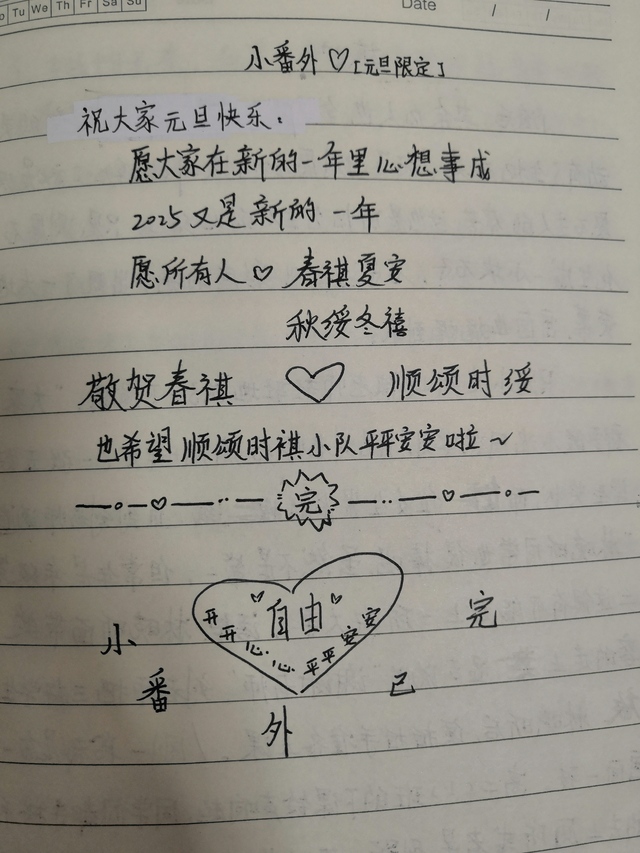 Tu We Th Fr Sa Su
Date / /
小番外♡[元旦限定]
祝大家元旦快乐：
愿大家在新的一年里心想事成
2025又是新的一年
愿所有人♡春祺夏安
秋绥冬禧
敬贺春祺 ♡ 顺颂时绥
也希望顺颂时祺小队平平安安啦～
完
自由
开开心心平平安安
小番外已完